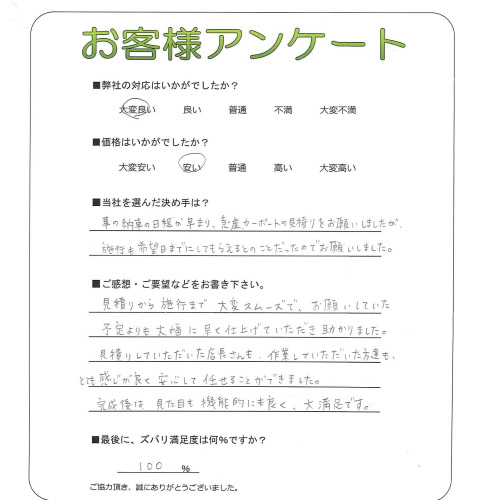 お客様アンケート
■弊社の対応はいかがでしたか？
大変良い 良い 普通 不満 大変不満
■価格はいかがでしたか？
大変安い 安い 普通 高い 大変高い
■当社を選んだ決め手は？
車の納車の日程が早まり、急遽カーポートの見積りをお願いしましたが、
施行も希望日までにしてもらえるとのことだったのでお願いしました。
■ご感想・ご要望などをお書き下さい。
見積りから施行まで大変スムーズで、お願いしていた
予定よりも大幅に早く仕上げていただき助かりました。
見積りしていただいた店長さんも、作業していただいた方達も、
とても感じが良く安心して任せることができました。
完成後は見た目も機能的にも良く、大満足です。
■最後に、ズバリ満足度は何%ですか？
100 %
ご協力頂き、誠にありがとうございました。